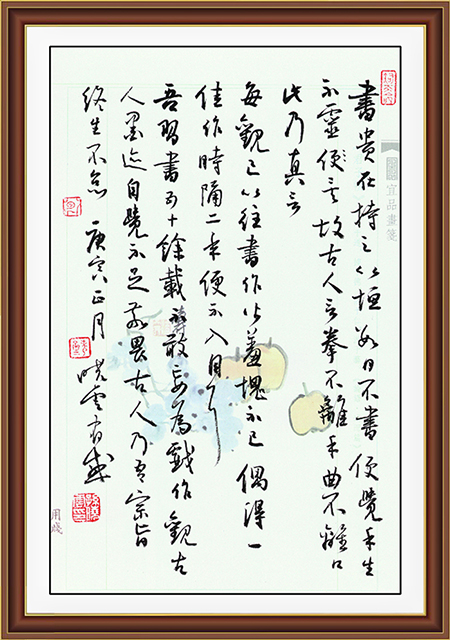 書貴在持之以恒數日不書便覺手生
不靈便故古人言拳不離手曲不離口
此乃真言
每觀己以往書作皆羞愧不已偶得一
佳作時隔二年便不入目
吾習書五十餘載不敢妄為戲作觀古
人墨迹自覺不足敬畏古人乃吾宗旨
終生不怠 庚寅正月 曉雲有感
宜品畫箋
用箋